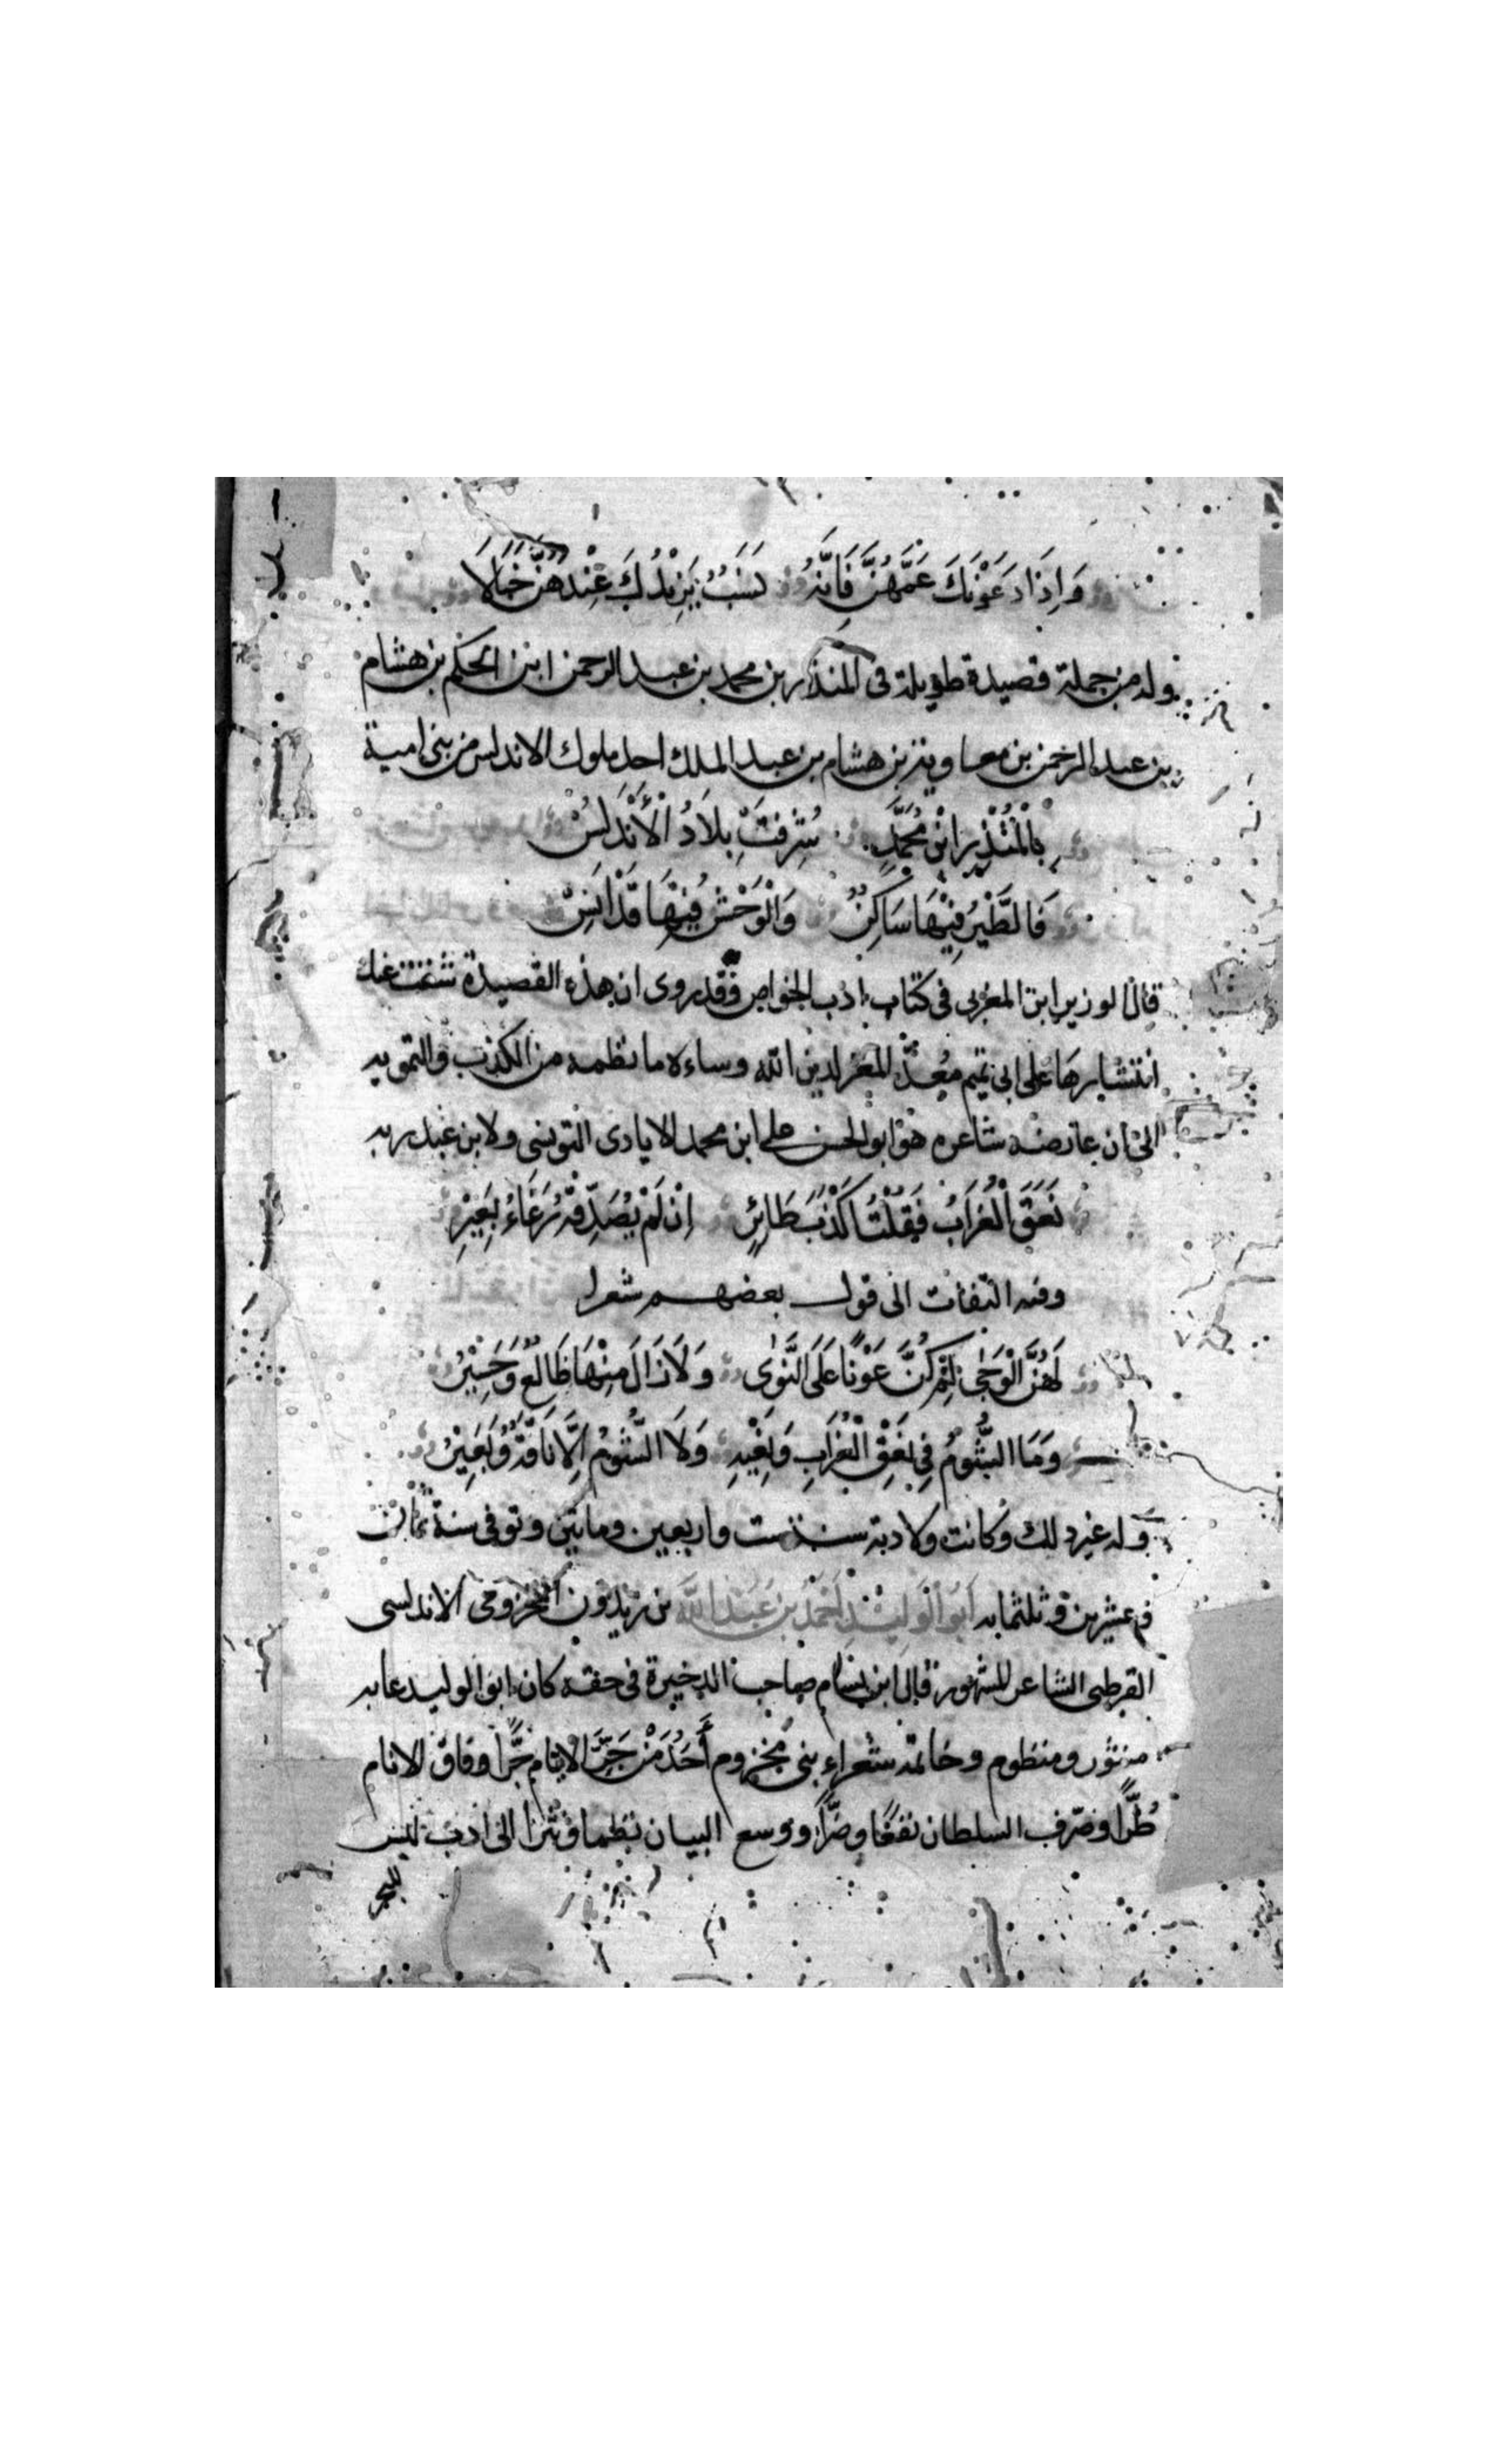 وَاِذَا دَعَوْنَكَ عَمَّهُنَّ فَاِنَّهُ نَسَبٌ يَزِيْدُكَ عِنْدَهُنَّ خَبَالَا
وله من جملة قصيدة طويلة فى المنذر بن محمد بن عبد الرحمن ابن الحكم بن هشام
بن عبد الرحمن بن معاوية بن هشام بن عبد الملك احد ملوك الاندلس من بنى امية
بِالْمُنْذِرِ ابْنِ مُحَمَّدٍ شَرُفَتْ بِلَادُ الْأَنْدَلُسْ
فَالطَّيْرُ فِيْهَا سَاكِنٌ وَالْوَحْشُ فِيْهَا قَدْ اَنِسْ
قال الوزير ابن المغربى فى كتاب ادب الخواص وقد روى ان هذه القصيدة شقت عند
انتشارها على ابى تميم مَعدّ المعز لدين الله وساءه ما تظمه من الكذب والتمويه
الى ان عارضه شاعره هو ابو الحسن على ابن محمد الايادى التونسى ولابن عبد ربه
نَعَقَ الْغُرَابُ فَقُلْتُ اَكْذَبُ طَائِرٍ اِنْ لَمْ يُصَدِّقْهُ رُغَاءُ بَعِيْرِ
وفيه التفات الى قول بعضهم شعرا
لَهُنَّ الْوَجَى لِمْ كُنَّ عَوْنًا عَلَى النَّوَى وَلَا زَالَ مِنْهَا ظَالِعٌ وَحَسِيْرُ
وَمَا الشُّومُ فِى نَعْقِ الْغُرَابِ وَنَعْبِهِ وَلَا الشُّومُ اِلَّا نَاقَةٌ وَبَعِيْرُ
وله غير ذلك وكانت ولادته سنة ست واربعين ومايتين وتوفى سنة ثمان
وعشرين وثلثمايه اَبُو الْوَلِيْدِ اَحْمَدُ بن عَبْد اللّه بن زيدون المخزومى الاندلسى
القرطبى الشاعر المشهور قال ابن بسام صاحب الذخيرة فى حقه كان ابو الوليد غايه
منثور ومنظوم وخاتمة شعراء بنى مخزوم أَحَدُ مَنْ جَرَّ الايام جَرًّا وفاق الانام
طُرًّا وصرّف السلطان نفعًا وضَرًّا ووسع البيان نظما ونثرا الى ادب ليس
للبحر